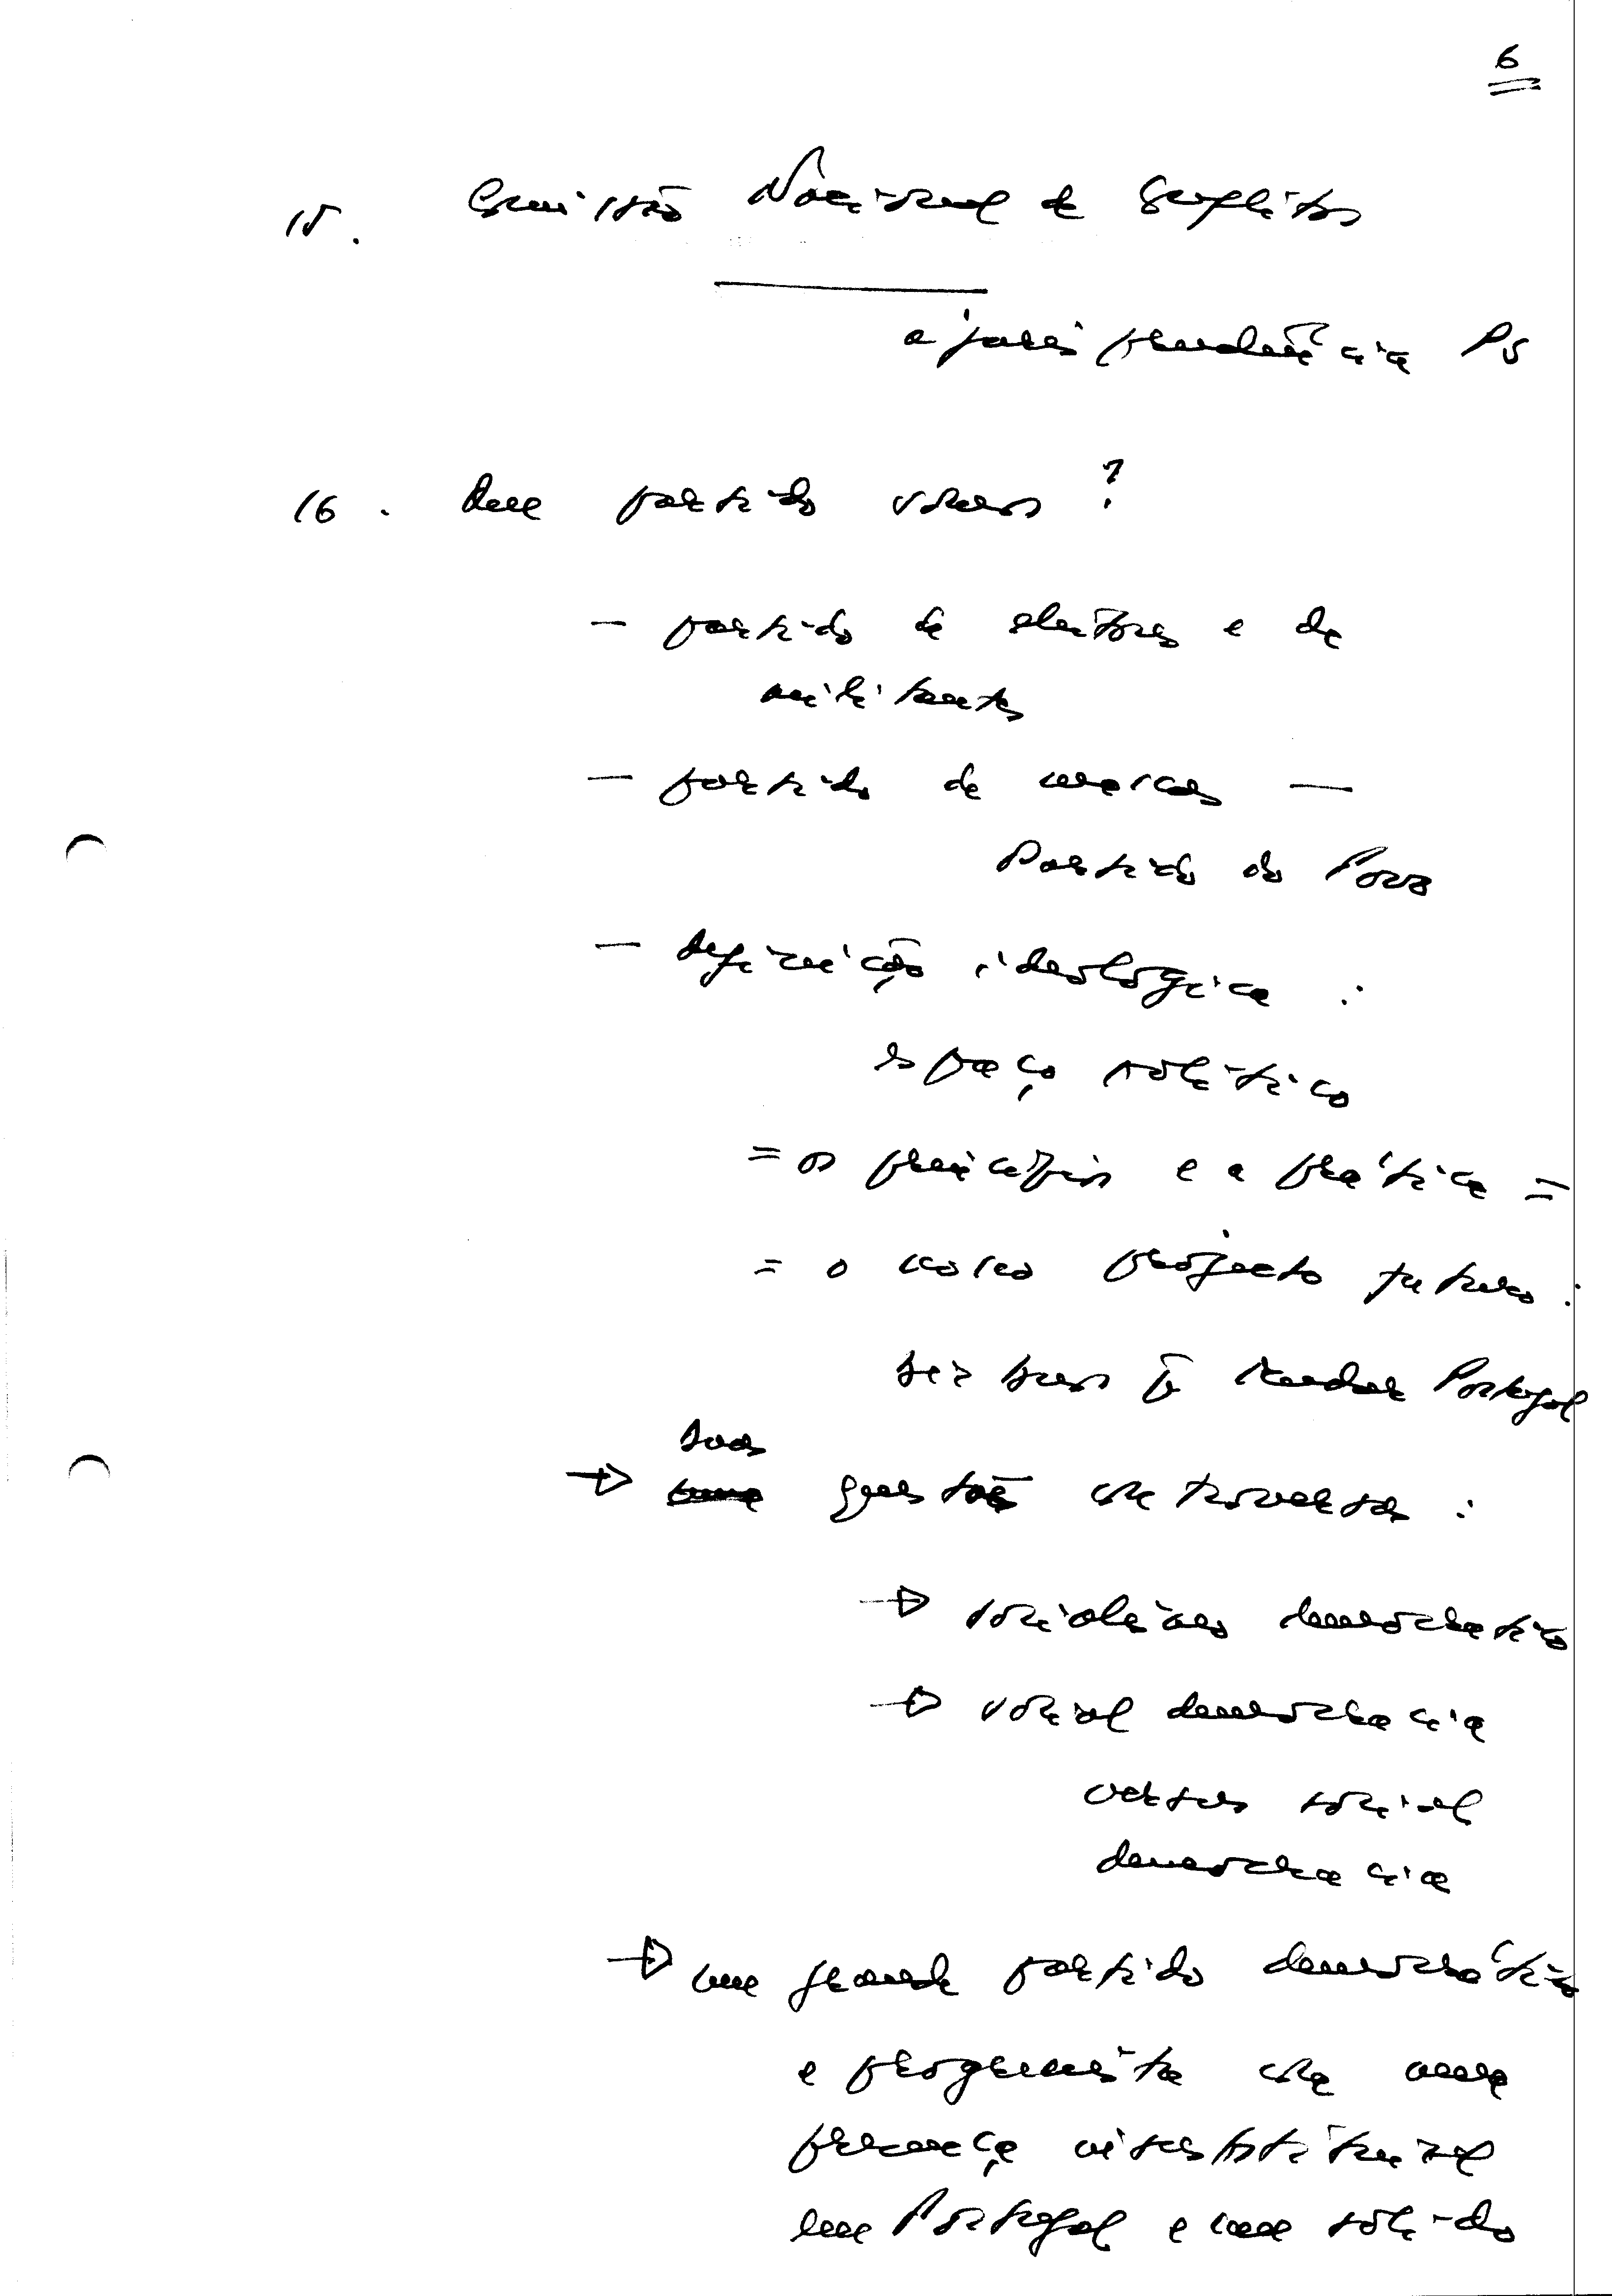 6
15. Comissão Nacional de Conflitos
a jurisprudência PS
16. Que partido somos ?
— partido de eleitores e de
militantes
— partido de massas —
Partido do Povo
— definição ideológica :
espaço político
= os princípios e a prática =
= o nosso projecto futuro :
servirmos p. mudar Portugal
→ duas questões controversas :
→ socialismo democrático
→ social democracia
versus social
democracia
→ um grande partido democrático
e progressista com uma
presença insubstituível
em Portugal e um sólido